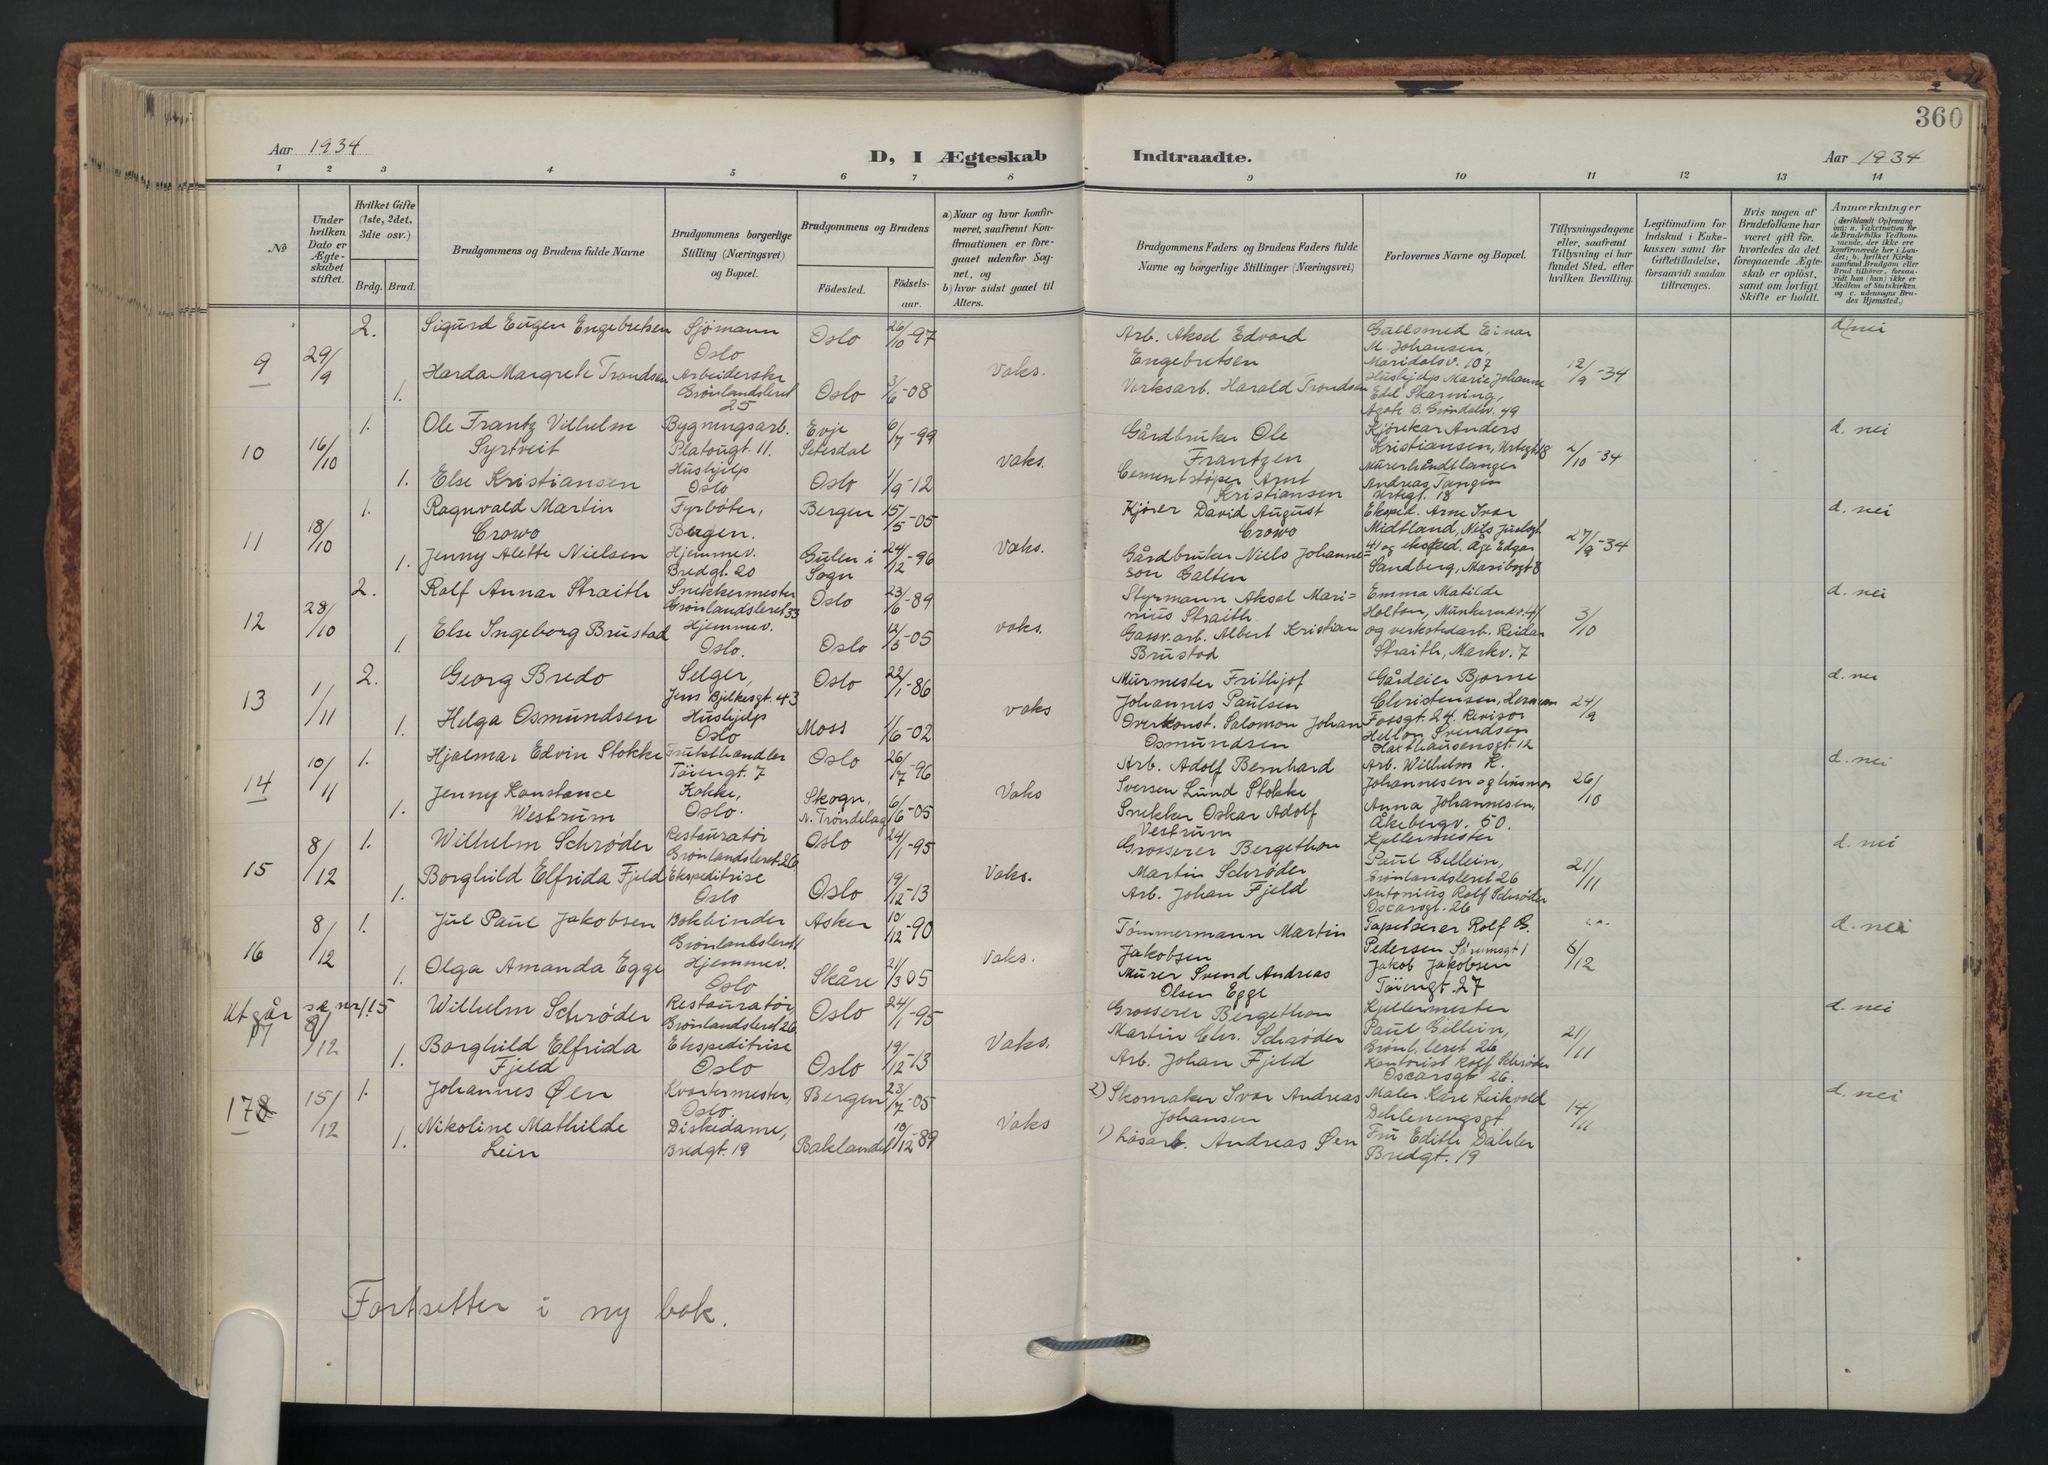 360
Aar 1934
D, I Ægteskab
Indtraadte.
Aar 1934
1 2 3 4 5 6 7 8 9 10 11 12 13 14
No
Under hvilken Dato er Ægteskabet stiftet.
Hvilket Gifte (1ste, 2det, 3die osv.)
Brdg. Brud.
Brudgommens og Brudens fulde Navne
Brudgommens borgerlige Stilling (Næringsvei) og Bopæl.
Brudgommens og Brudens
Fødested. Fødselsaar.
a) Naar og hvor konfirmeret, saafremt Konfirmationen er foregaaet udenfor Sognet, og
b) hvor sidst gaaet til Alters.
Brudgommens Faders og Brudens Faders fulde Navne og borgerlige Stillinger (Næringsvei)
Forlovernes Navne og Bopæl.
Tillysningsdagene eller, saafremt Tillysning ei har fundet Sted, efter hvilken Bevilling.
Legitimation for Indskud i Enkekassen samt for Giftetilladelse, forsaavidt saadan tiltrænges.
Hvis nogen af Brudefolkene har været gift før, hvorledes da det foregaaende Ægteskab er opløst, samt om lovligt Skifte er holdt.
Anmerkninger
9 29/9 2. Sigurd Eugen Engebretsen Sjømann Oslo Oslo 26/10-97
1. Harda Margrete Trondsen Arbeiderske Grønlandsleret 25 Oslo 3/6-08
Vaks.
Arb. Aksel Edvard Engebretsen
Verksarb. Harald Trondsen
Gullsmed Einar M. Johansen, Maridalsv. 107
Hushjelp Marie Johanne
12/9-34
d) nei
10 16/10 1. Ole Frantz Vilhelm Syrtveit Bygningsarb. Platougt. 11. Evje Setesdal 6/7-99
1. Else Kristiansen Hushjelp Oslo Oslo 1/9-12
Vaks.
Gårdbruker Ole Frantzen
Cementstøper Arnt Kristiansen
Kjørekar Anders Kristiansen, Urtegt. 18
Murerhåndtlanger Andreas Tangen Urtegt. 18
2/10-34
d. nei
11 18/10 1. Ragnvald Martin Crowo Fyrbøter, Bergen. Bergen 15/5-05
1. Jenny Alette Nielsen Hjemmev. Bredgt. 20 Gulen i Sogn 24/12-96
Vaks.
Kjører David August Crowo
Gårdbruker Niels Johannesson Galten
Eksped. Arne Ivar Midtland, Nils Juelsgt. 41 og eksped. Åge Edgar Sandberg, Maribogt 8
27/9-34
d. nei
12 28/10 2. Rolf Annar Straith Snekkermester Grønlandsleret 33 Oslo 23/6-89
1. Else Ingeborg Brustad Hjemmev. Oslo. Oslo 12/3-05
vaks.
Styrmann Aksel Marinius Straith
Gassv.arb. Albert Kristian Brustad
Emma Matilde Holton, Munkernv. 41 og verkstedarb. Reidar Straith, Markv. 7
3/10
d. nei
13 1/11 2. Georg Bredo Selger, Jens Bjelkesgt. 43 Oslo 22/1-86
1. Helga Osmundsen Hushjelp Oslo Moss 1/6-02
vaks
Murmester Frithjof Johannes Paulsen
Overkonst. Salomon Johan Osmundsen
Gårdeier Bjarne Christensen, Herman Fossgt. 24. Revisor
Svendsen Haxthausensgt. 12
24/9
d. nei
14 10/11 1. Hjalmar Edvin Stokke Frukthandler Tøiengt. 7 Oslo 26/7-96
1. Jenny Konstance Westrum Kokke, Oslo. Skogn, N. Trøndelag 6/6-05
Vaks
Arb. Adolf Bernhard Iversen Lund Stokke
Snekker Oskar Adolf Vestrum
Arb. Wilhelm K. Johannesen og husmor Anna Johannesen, Åkebergv. 50.
26/10
d. nei
15 8/12 1. Wilhelm Schrøder Restauratør Grønlandsleret 26 Oslo 24/1-95
1. Borghild Elfrida Fjeld Ekspeditrise Oslo Oslo 19/12-13
Vaks.
Grosserer Bergethon Martin Schrøder
Arb. Johan Fjeld
Kjellermester Paul Eillein, Grønlandsleret 26
Antonius Rolf Schrøder Oscarsgt. 26
21/11
d. nei
16 8/12 1. Jul Paul Jakobsen Bokbinder Grønlandsleret Asker 10/12-90
1. Olga Amanda Egge Hjemmev. Oslo Skåre 21/3 05
Vaks.
Tømmermann Martin Jakobsen
Murer Svend Andreas Olsen Egge
Tapetserer Rolf G. Pedersen Strømsgt 1
Jakob Jakobsen Tøiengt. 27
6/12
d. nei
Utgår se nr. 15
17 8/12 Wilhelm Schrøder Restauratør Grønlandsleret 26 Oslo 24/1-95
1. Borghild Elfrida Fjeld Ekspeditrise Oslo Oslo 19/12-13
Vaks.
Grosserer Bergethon Martin Chr. Schrøder
Arb. Johan Fjeld
Kjellermester Paul Eillein, Grønl. leret 26
Kontorist Rolf Schrøder Oscarsgt 26.
21/11
d. nei
178 15/12 1. Johannes Øen Kvartermester, Oslo, Bergen 23/7-05
1. Nikoline Mathilde Lein Diskedame, Bredgt. 19 Baklandet 10/12-89
Vaks
2) Skomaker Ivar Andreas Johansen
1) Løsarb. Andreas Øen
Maler Kåre Leikvold Dehleningsgt
Fru Edith Dahler Bredgt. 19
14/11
d. nei
Fortsetter i ny bok.